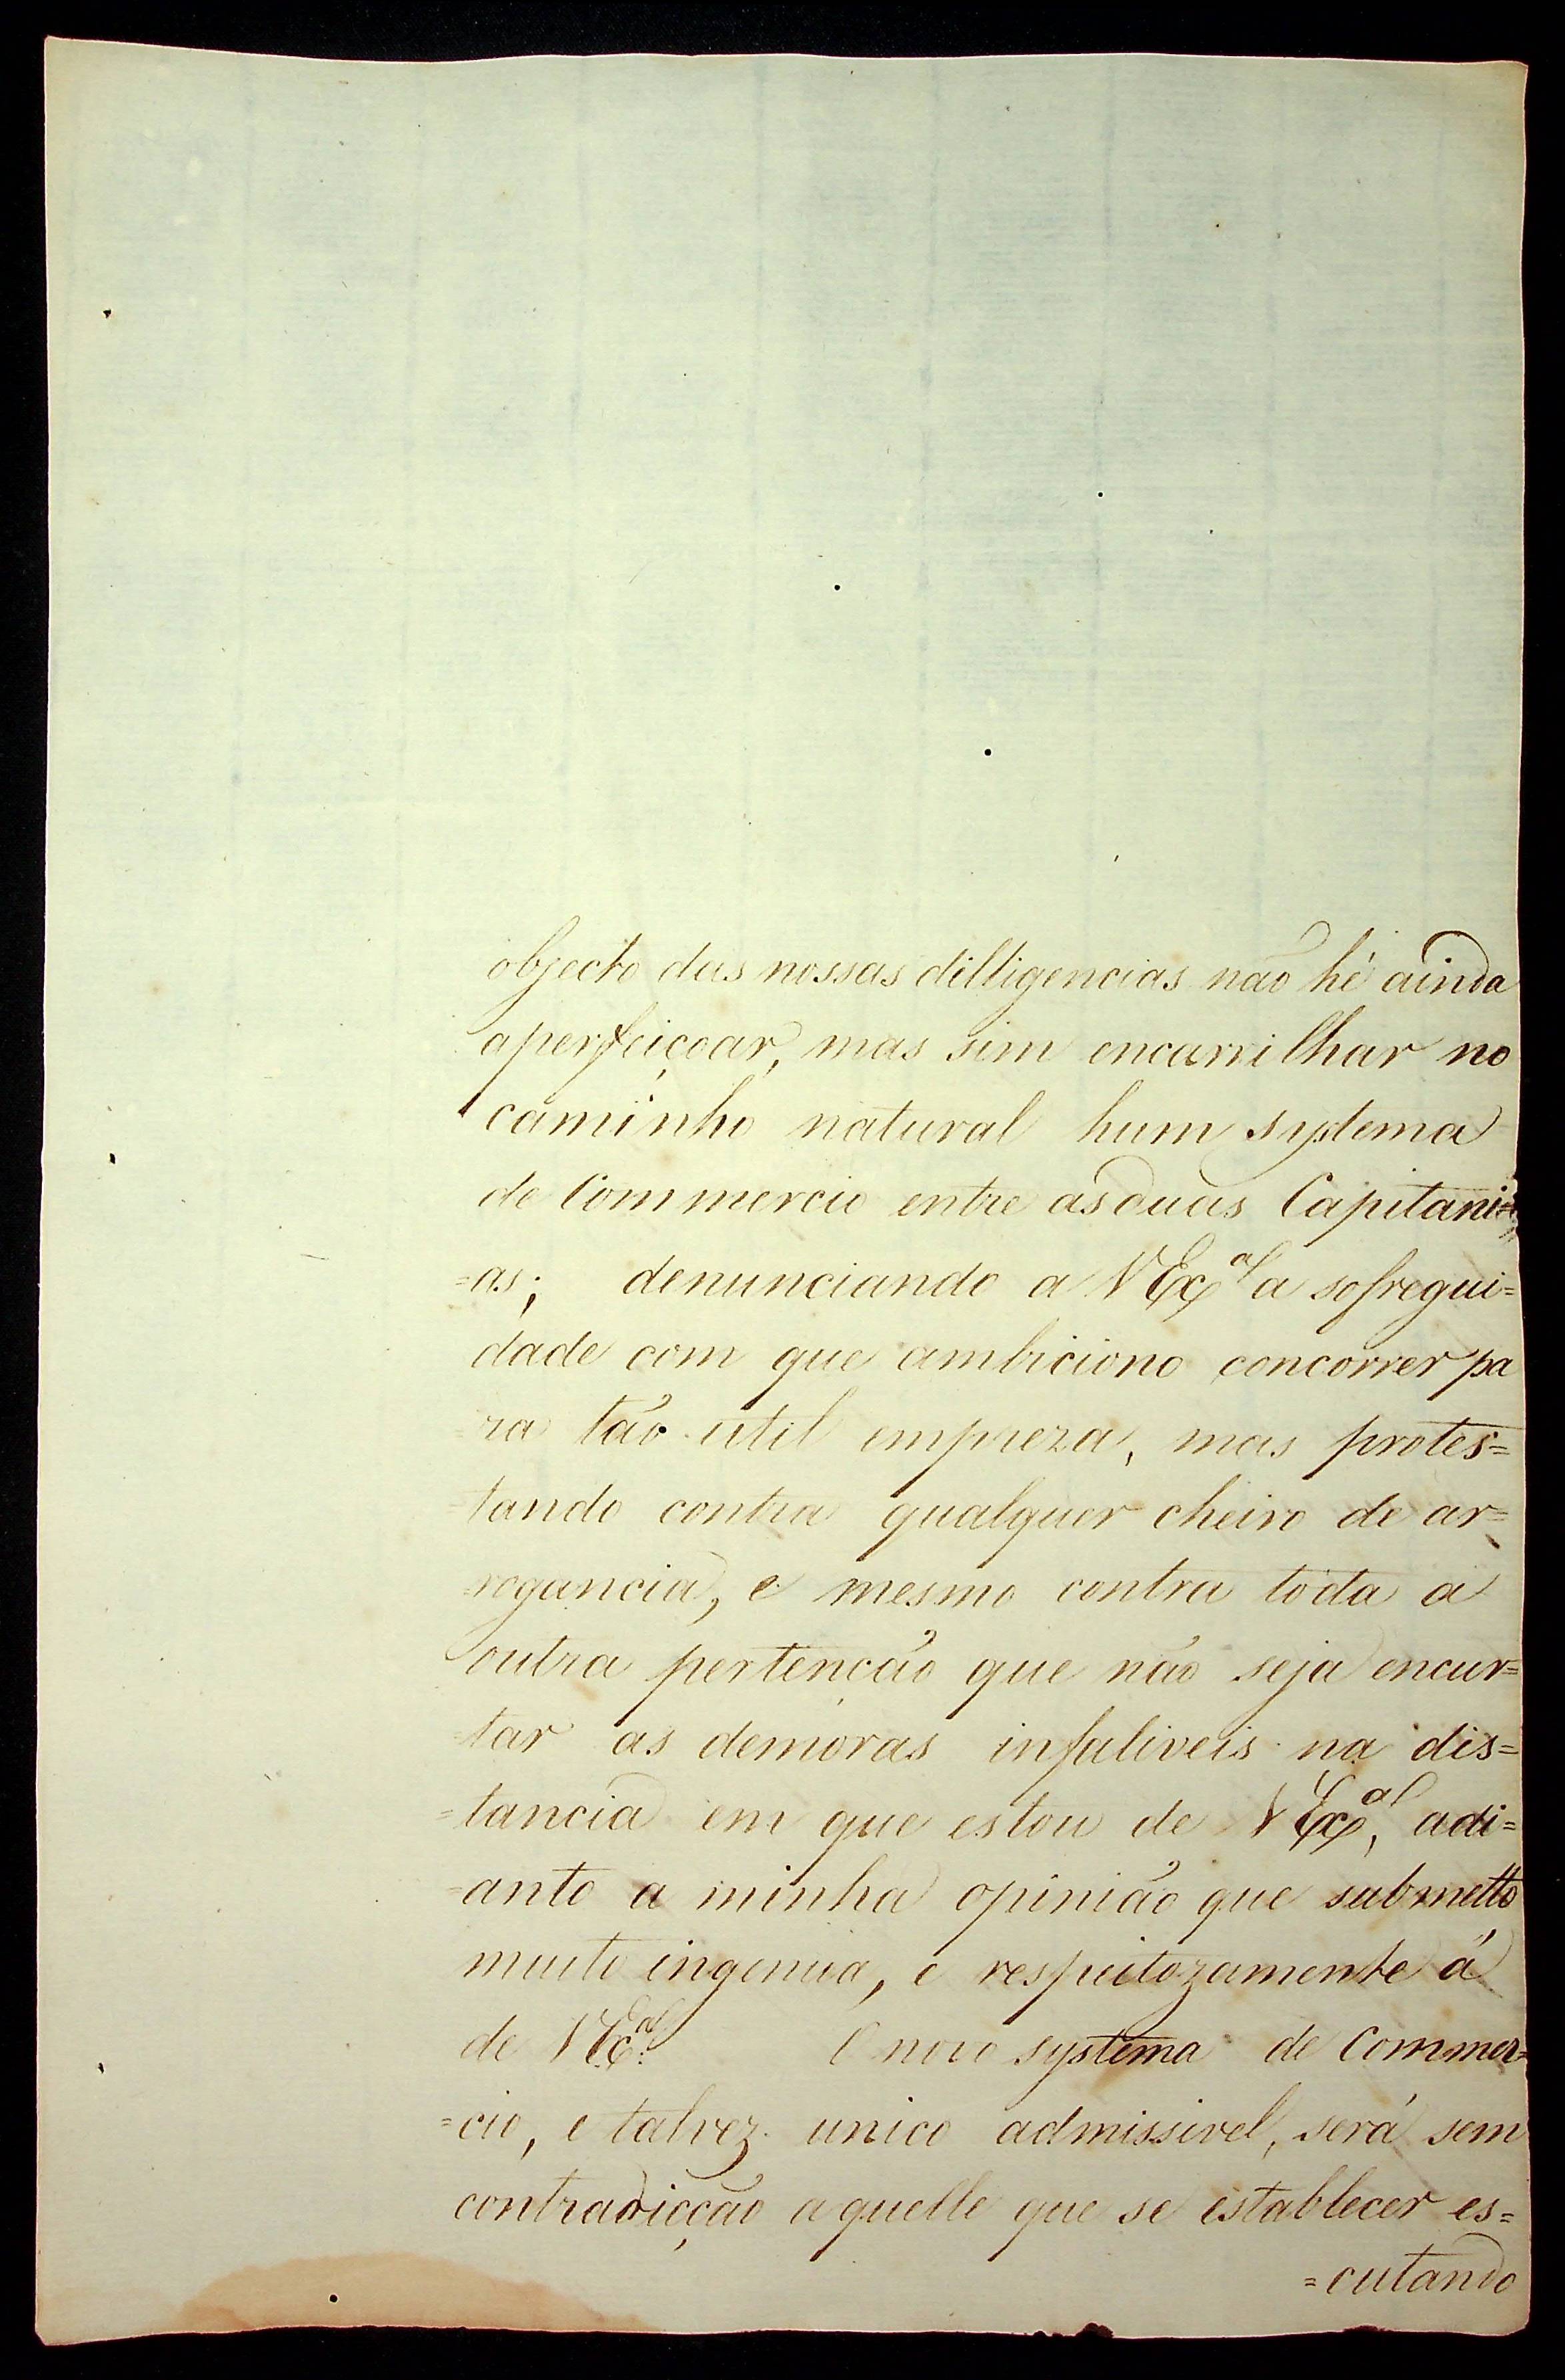 objecto das nossas dilligencias não hé ainda
aperfeiçoar, mas sim encarrilhar no
caminho natural hum systema
de Commercio entre as duas Capitani=
=as; denunciando a V Exª a sofregui=
dade com que ambiciono concorrer pa
ra tão util empreza, mas protes=
tando contra qualquer cheiro de ar=
=rogancia, e mesmo contra toda a
outra pertenção que não seja encur=
tar as demoras infaliveis na dis=
=tancia em que estou de V Exª, adi=
=anto a minha opinião que submetto
muito ingenua, e respeitozamente á
de V Exª: O novo systema de Commer=
=cio, e talvez unico admissivel, será sem
contradicção aquelle que se establecer es=
=cutando